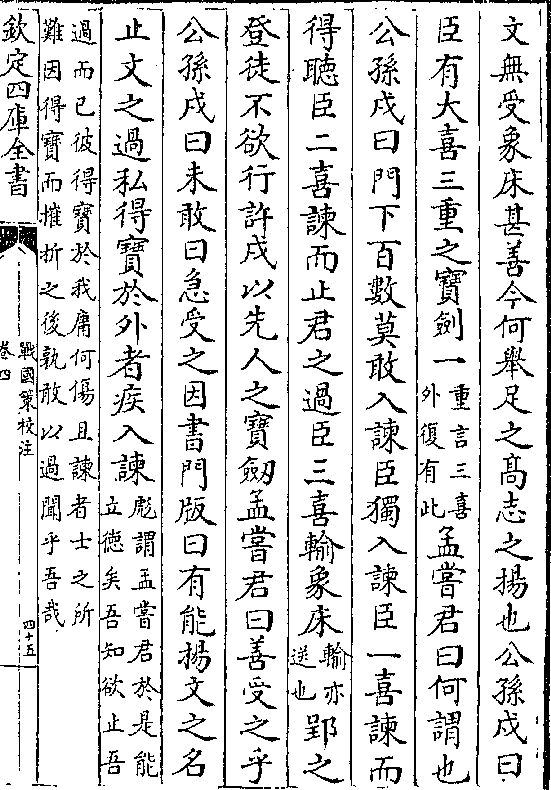 文無受象床甚善今何舉足之髙志之揚也公孫戍曰
臣有大喜三重之寶劍一重言三喜外復有此孟嘗君曰何謂也
公孫戍曰門下百數莫敢入諫臣獨入諫臣一喜諫而
得聴臣二喜諫而止君之過臣三喜輸象床輸亦送也郢之
登徒不欲行許戍以先人之寶劒孟嘗君曰善受之乎
公孫戍曰未敢曰急受之因書門版曰有能揚文之名
止文之過私得寶於外者疾入諫彪謂孟嘗君於是能立德矣吾知欲止吾
過而已彼得寶於我庸何傷且諫者士之所難因得寶而摧折之後孰敢以過聞乎吾哉
欽定四庫全書
戰國策校注
卷四
四十五